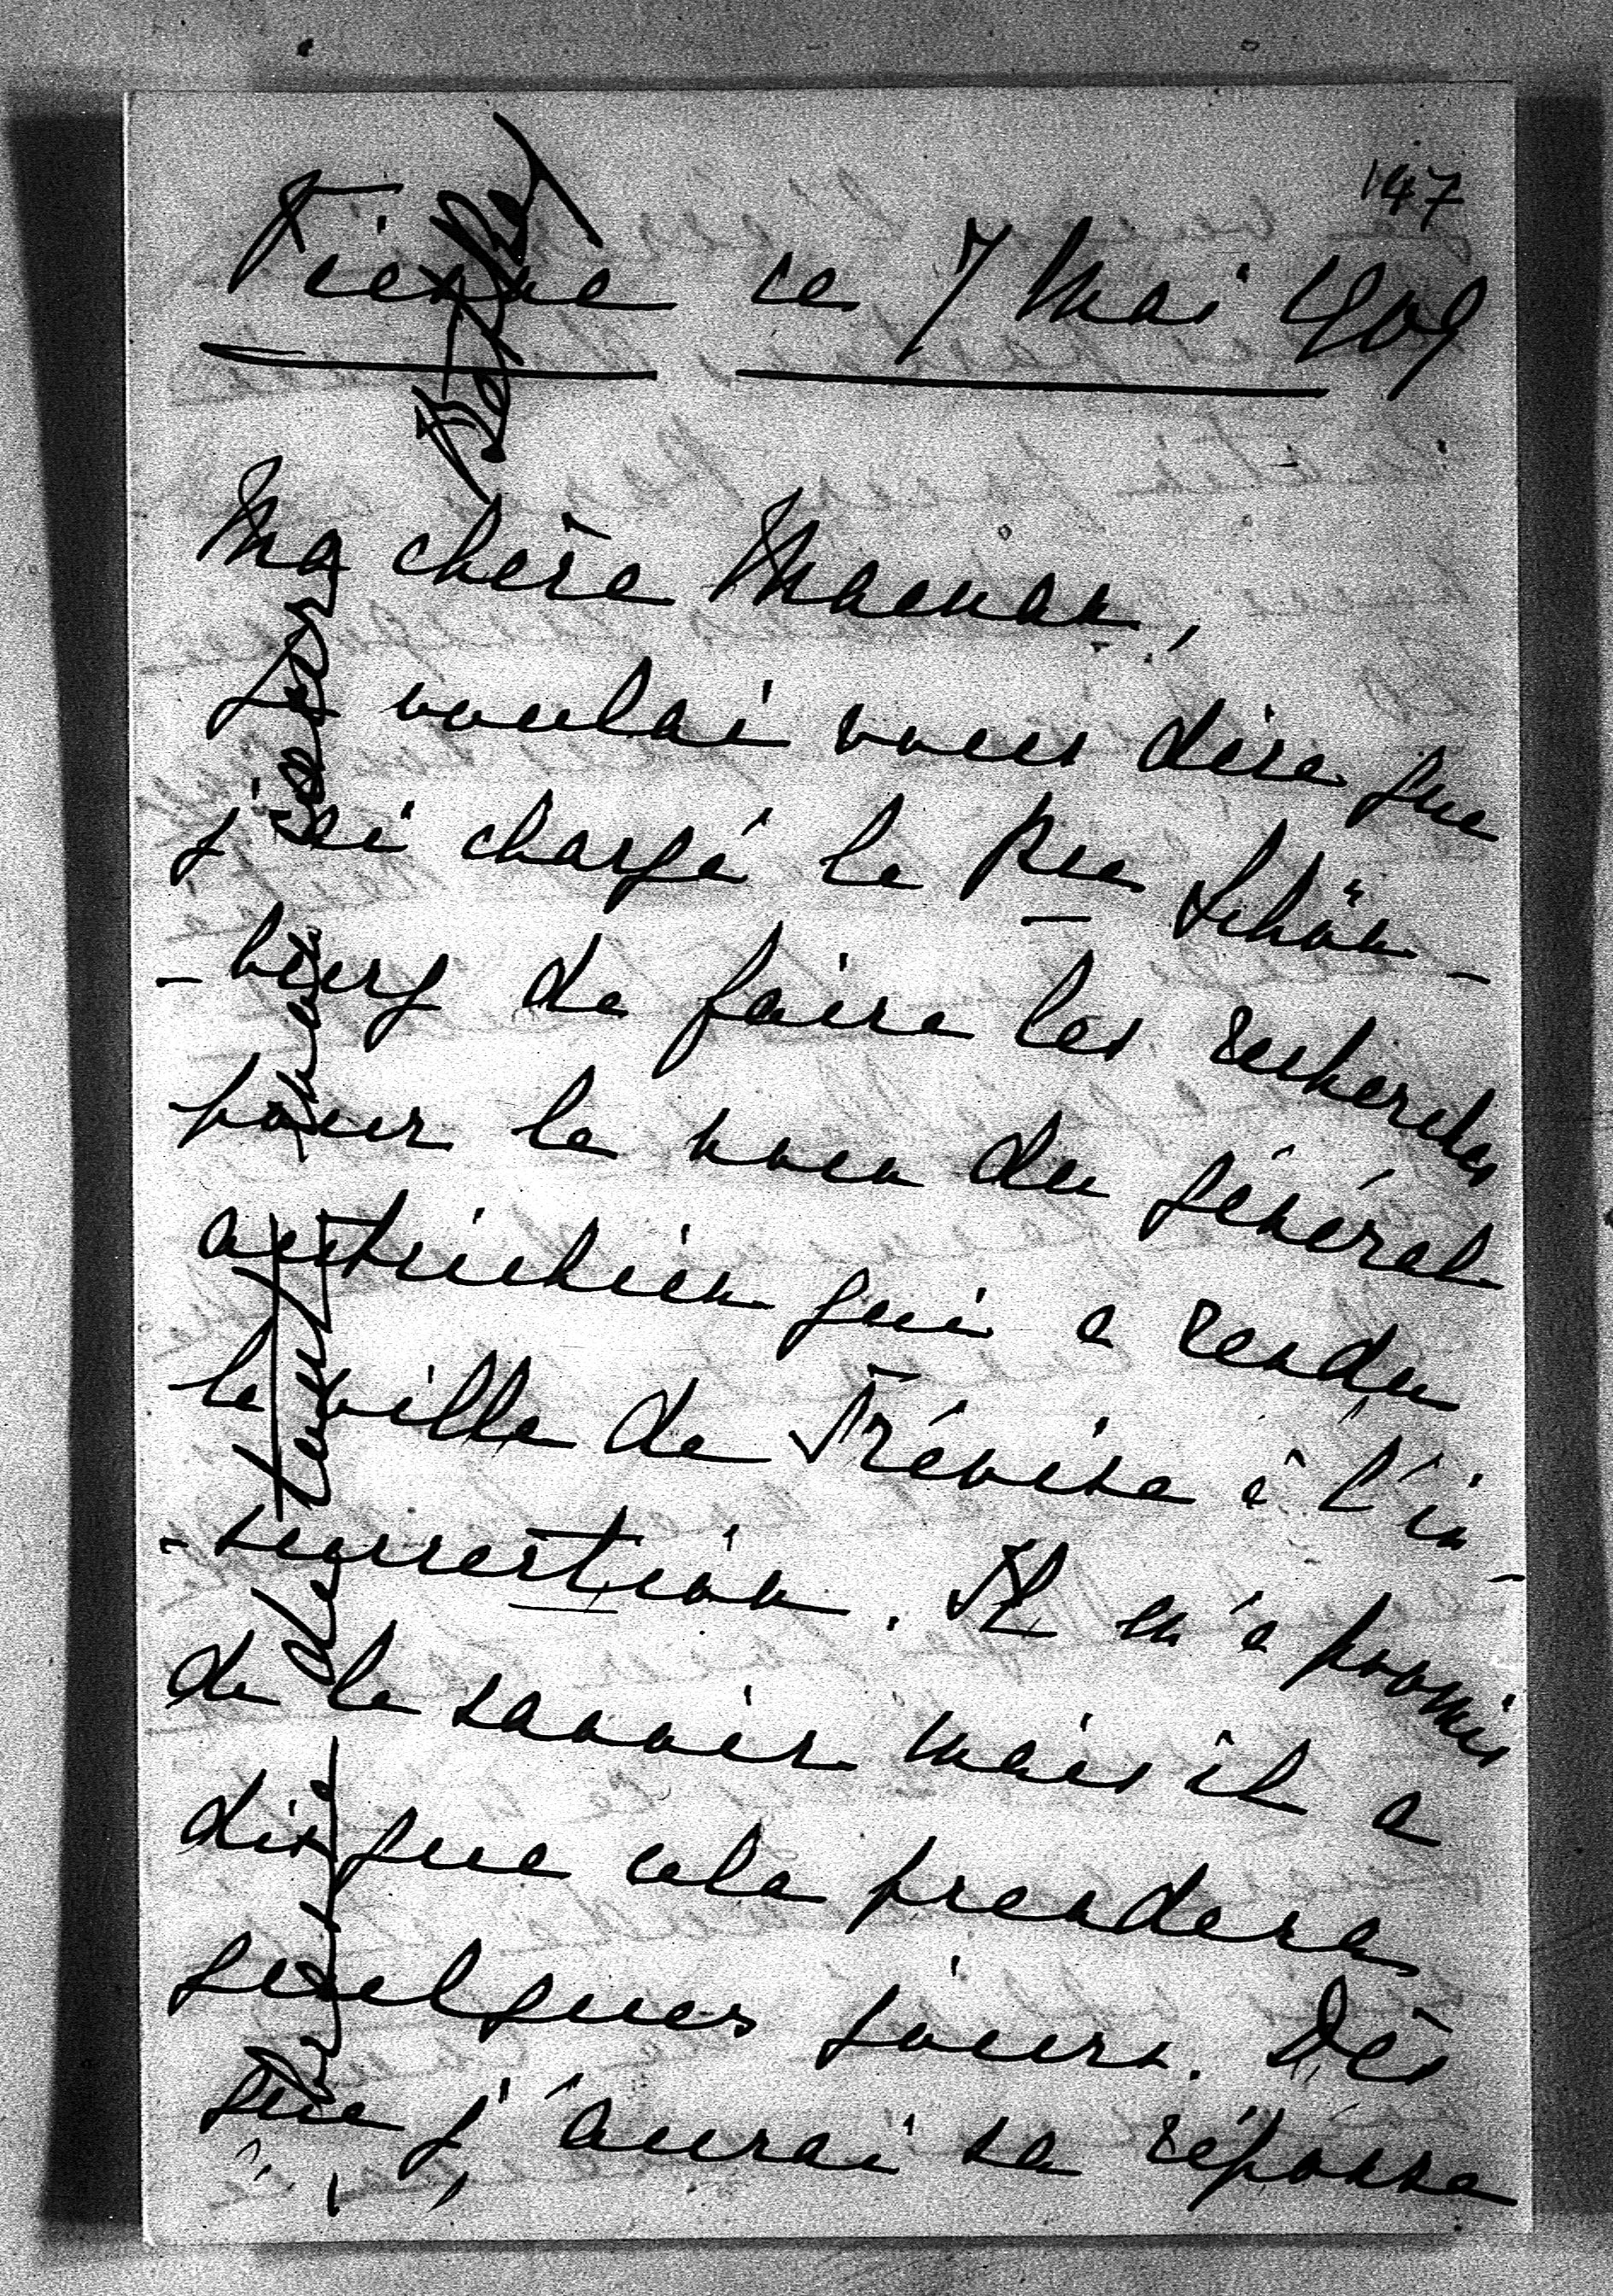 147
Vienne ce 7 Mai 1909
Ma chère Maman,
Je voulai vous dire que
j'ai chargé le Pce Schön-
-burg de faire les recherches
pour le nom du général
autrichien qui a rendu
la ville de Trévise à l'in-
-surrection. Il m'a promis
de le savoir mais il a
dit que cela prendera
quelques jours. Dès
que j'aurai sa réponse